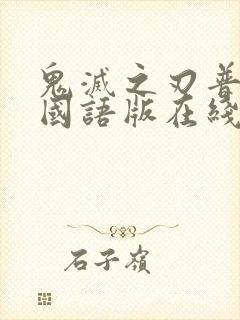 鬼滅之刃普
國語版在綫
石子嶺